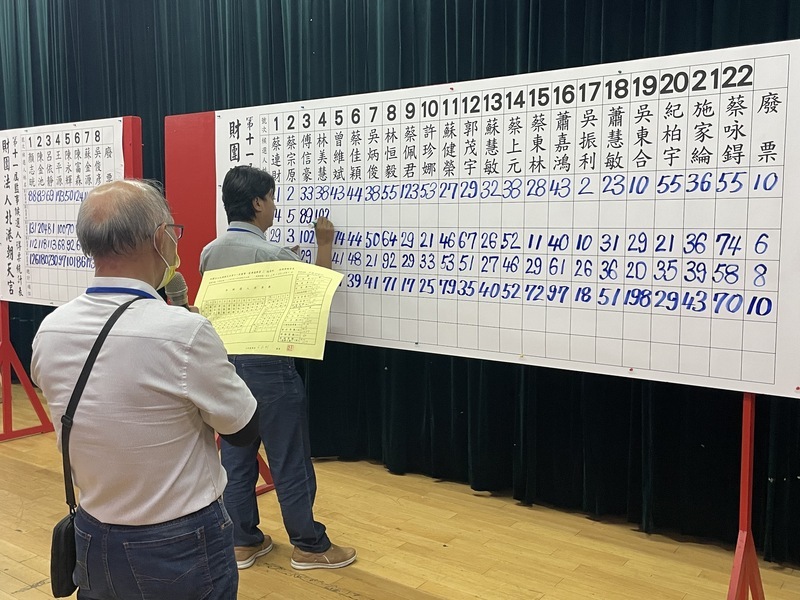 財團法人北港朝天宮
第十一屆監事候選人得票統計表
1 2 3 4 5 6 7 8
顏志曉 陳金池 呂依靜 王平源 陳永輝 陳富森 蘇金源 吳俊彥 廢票
財團
第十一
號次 候選人
1 2 3 4 5 6 7 8 9 10 11 12 13 14 15 16 17 18 19 20 21 22
蔡連財 蔡宗原 傅信豪 林美慧 曾維斌 蔡佳穎 吳炳俊 林恒毅 蔡佩君 許珍娜 蘇健榮 郭茂宇 蘇慧敏 蔡上元 蔡東林 蕭嘉鴻 吳振利 蕭慧敏 吳東合 紀柏宇 施家綸 蔡咏鍀 廢票
2 33 38 43 44 38 55 123 53 27 29 32 38 28 43 2 23 10 55 36 55 10
4 5 89 102
29 3 74 44 50 64 29 21 46 67 26 52 11 40 10 31 29 21 36 74 6
41 48 21 92 29 33 53 51 27 46 29 61 26 36 20 35 39 58 8
39 41 71 17 25 79 35 40 52 72 97 18 51 198 29 43 70 10